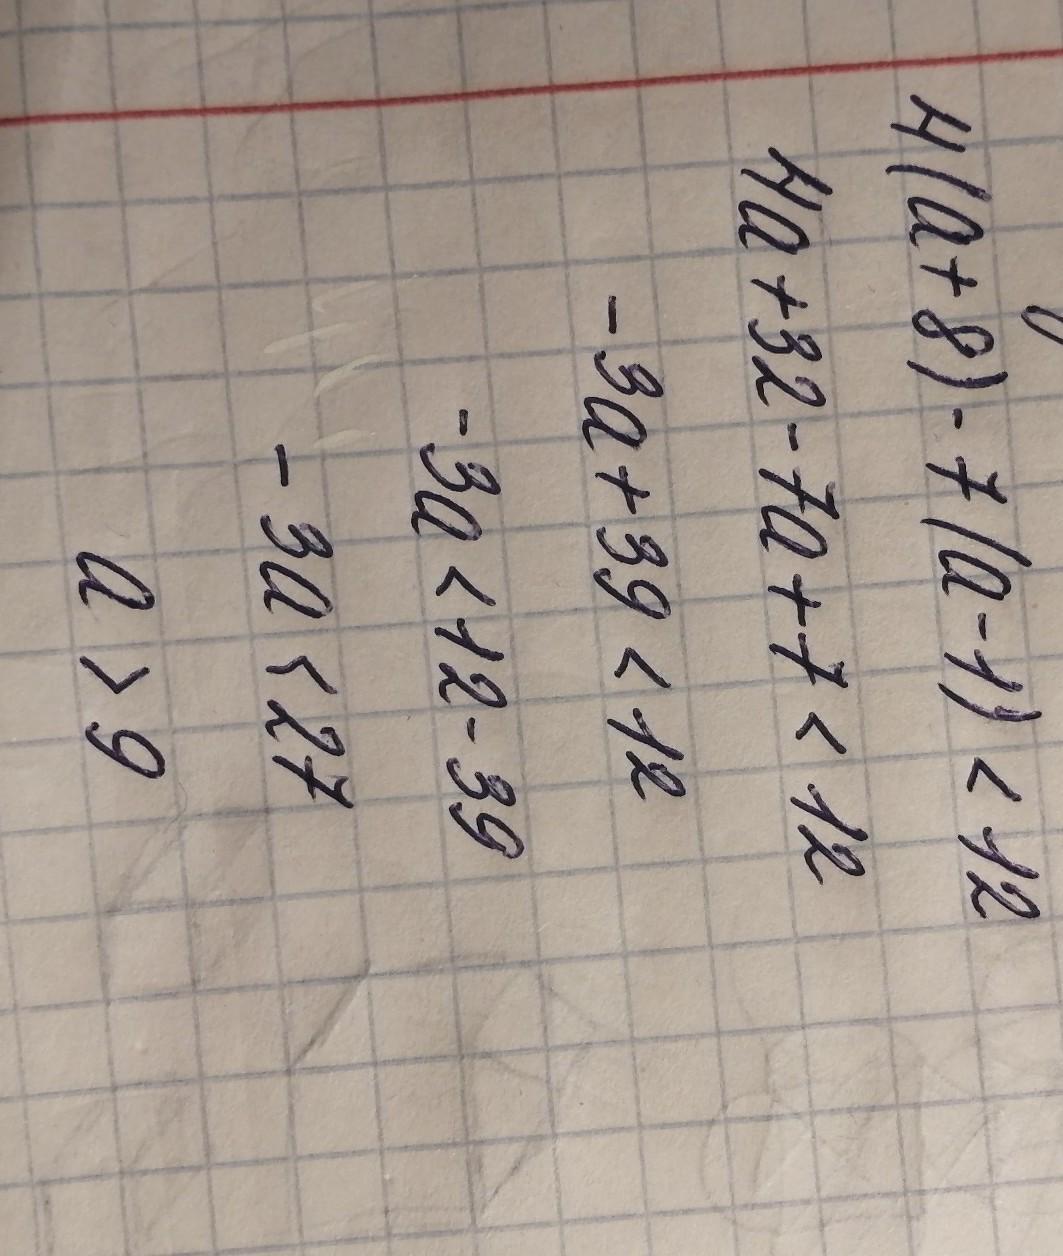 4(a+8)-7(a-1)<12
4a+32-7a+7<12
-3a+39<12
-3a<12-39
-3a<27
a>9